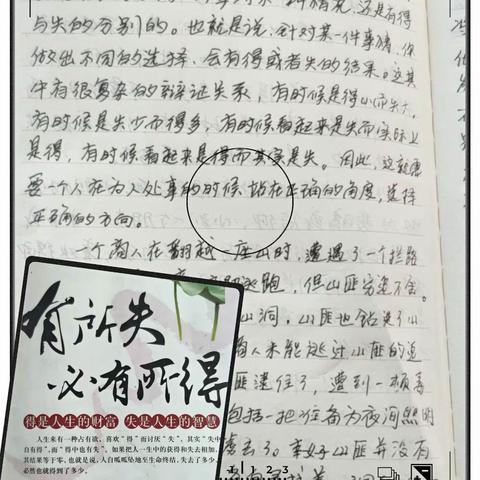 种情况,还是有得
与失的分别的。也就是说,针对某一件事情,你
做出不同的选择,会有得或者失的结果。这其
中有很复杂的辩证关系,有时候是得小而失大,
有时候是失少而得多,有时候看起来是失而实际上
是得,有时候看起来是得而其实是失。因此,这就需
要一个人在为人处事的时候,站在正确的角度,选择
正确的方向。
一个商人在翻越一座山时,遭遇了一个拦路
逃跑,但山匪穷追不舍。
山洞,山匪也钻进了山
商人未能逃过山匪的追
匪逮住了,遭到一顿毒
包括一把准备为夜间照明
去了。幸好山匪并没有
有所失
必有所得
得是人生的财富 失是人生的智慧
人生来有一种占有欲,喜欢“得”而讨厌“失”。其实“失中
自有得”,而“得中也有失”。如果把人一生中的获得和失去相加,
其结果等于零。也就是说,人自呱呱坠地至生命终结,失去了多少,
必然也就得到了多少。
1 2 3